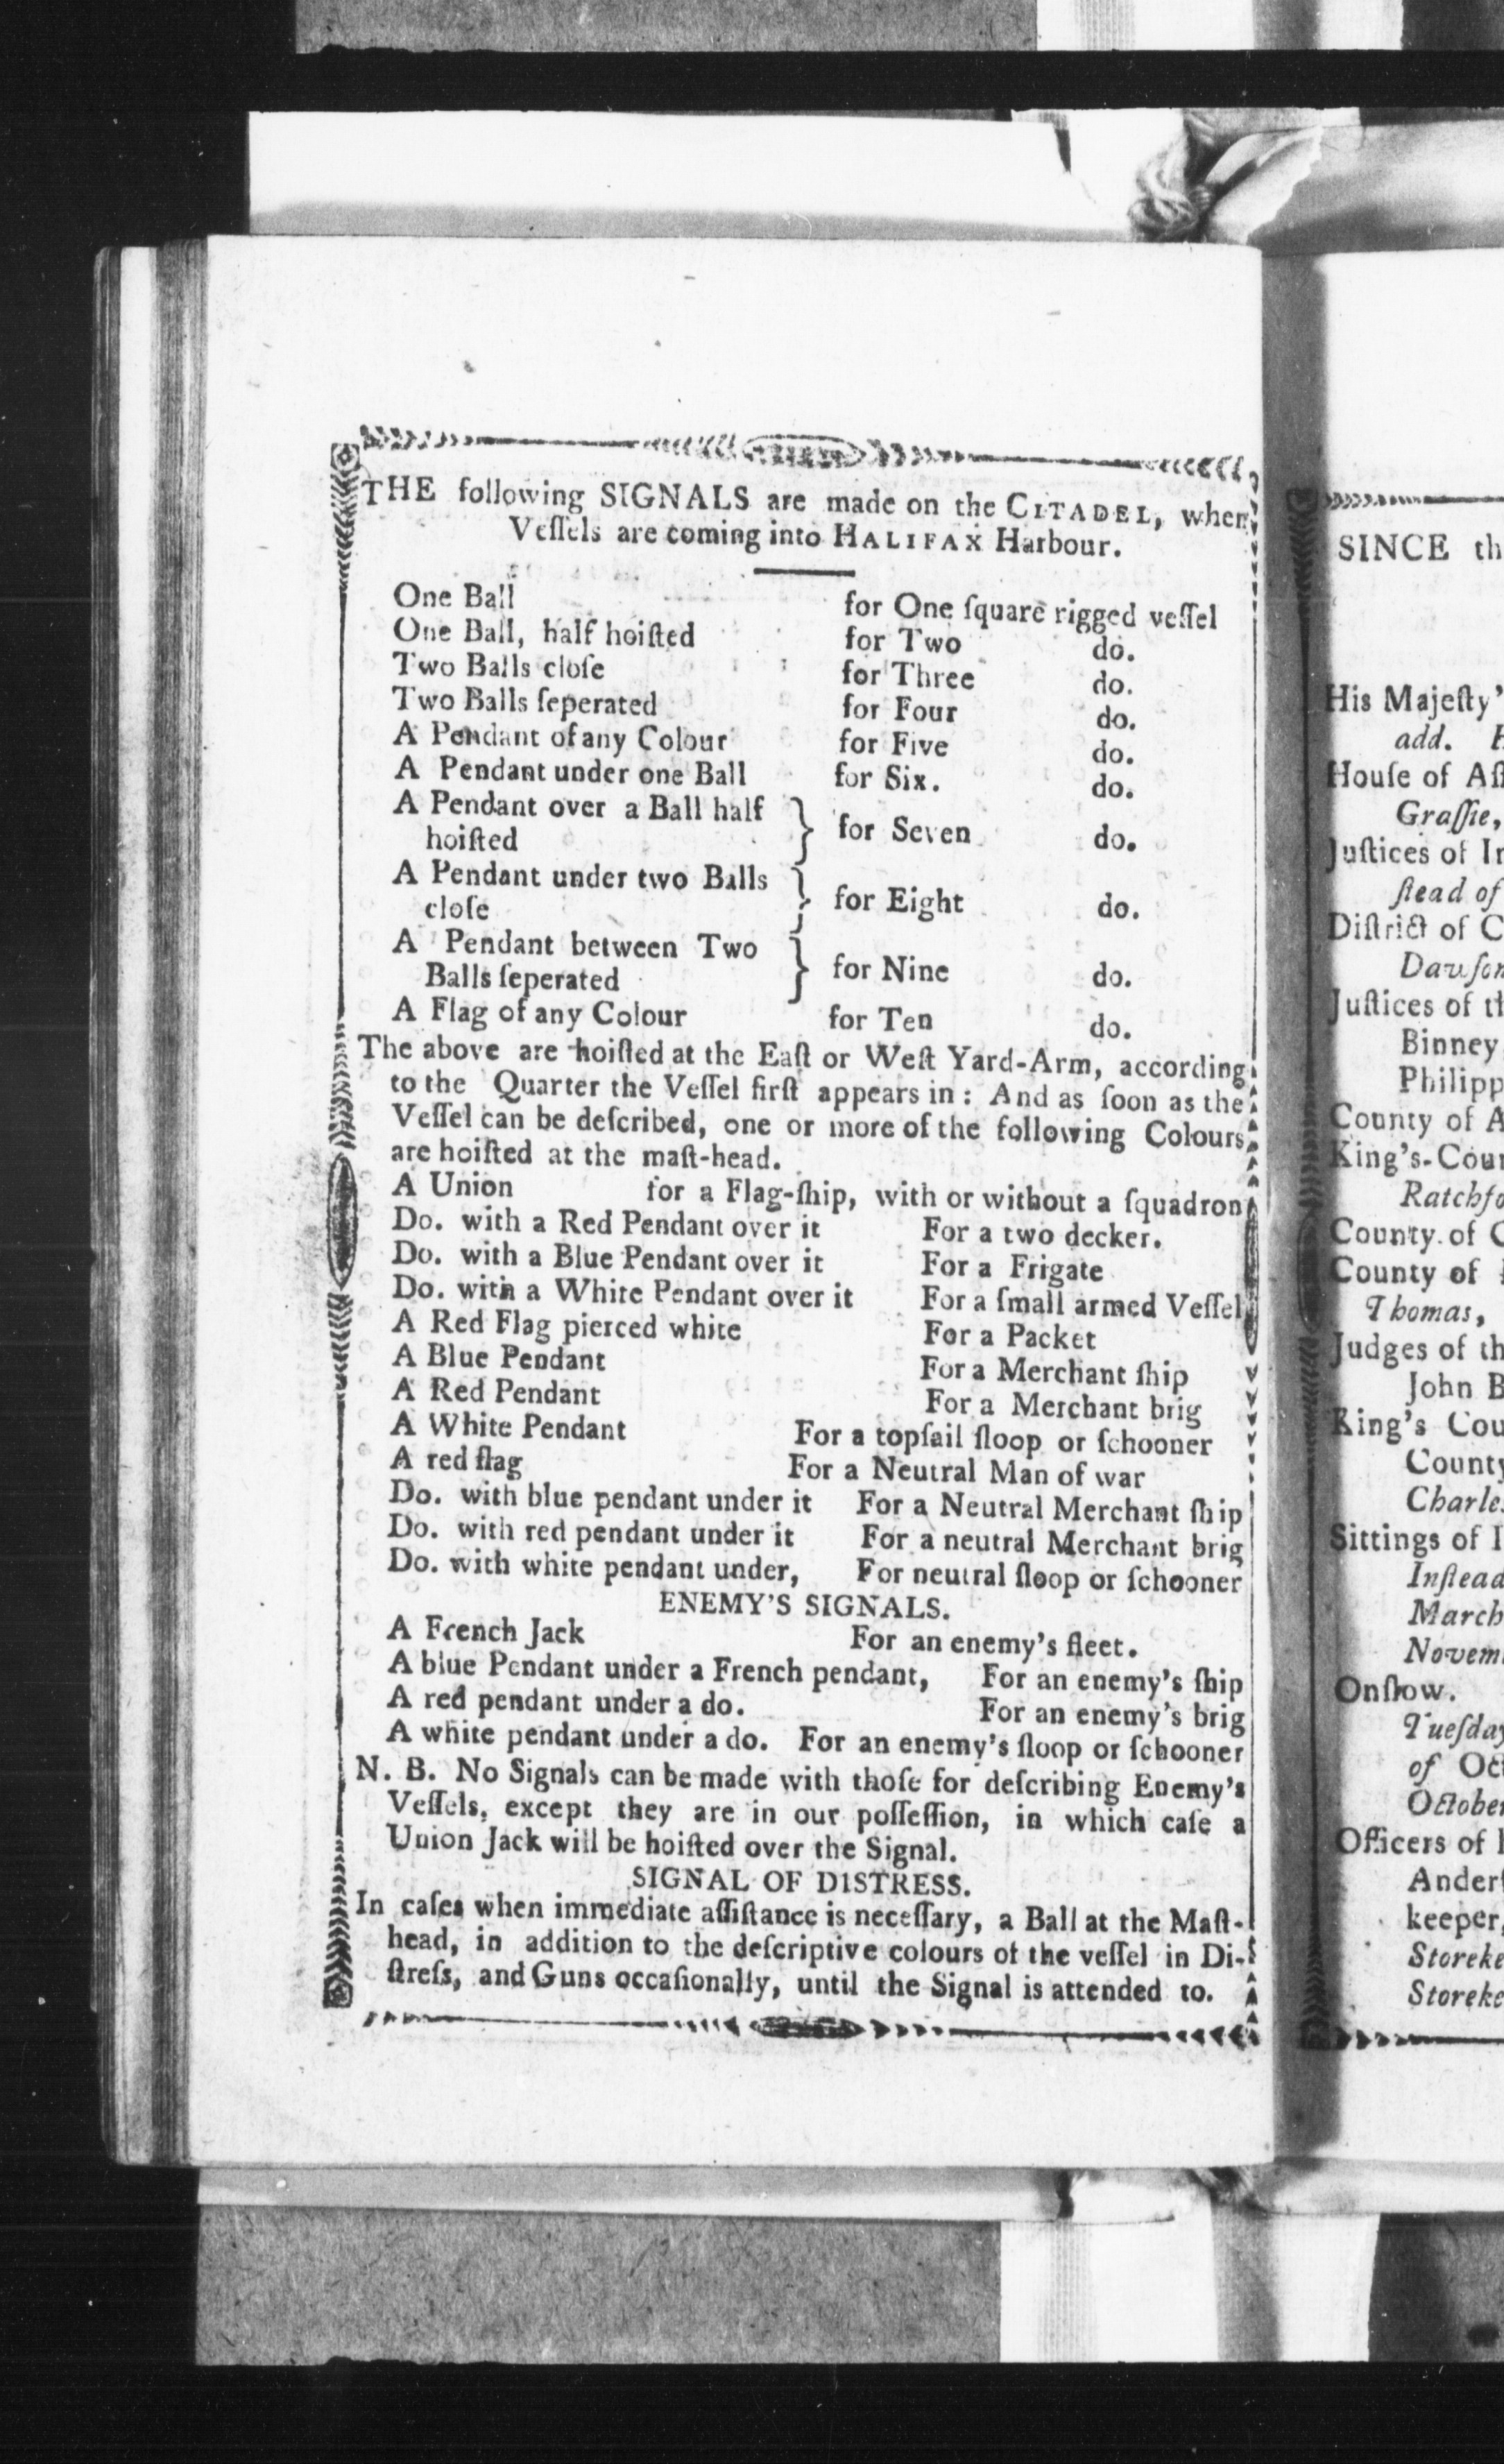 THE following SIGNALS are made on the CITADEL, when
Veſſels are coming into HALIFAX Harbour.
One Ball for One ſquare rigged veſſel
One Ball, half hoiſted for Two do.
Two Balls cloſe for Three do.
Two Balls ſeperated for Four do.
A Pendant of any Colour for Five do.
A Pendant under one Ball for Six. do.
A Pendant over a Ball half
hoiſted } for Seven do.
A Pendant under two Balls
cloſe } for Eight do.
A Pendant between Two
Balls ſeperated } for Nine do.
A Flag of any Colour for Ten do.
The above are hoiſted at the Eaſt or Weſt Yard-Arm, according
to the Quarter the Veſſel firſt appears in: And as ſoon as the
Veſſel can be deſcribed, one or more of the following Colours
are hoiſted at the maſt-head.
A Union for a Flag-ſhip, with or without a ſquadron
Do. with a Red Pendant over it For a two decker.
Do. with a Blue Pendant over it For a Frigate
Do. with a White Pendant over it For a ſmall armed Veſſel
A Red Flag pierced white For a Packet
A Blue Pendant For a Merchant ſhip
A Red Pendant For a Merchant brig
A White Pendant For a topſail ſloop or ſchooner
A red flag For a Neutral Man of war
Do. with blue pendant under it For a Neutral Merchant ſhip
Do. with red pendant under it For a neutral Merchant brig
Do. with white pendant under, For neutral ſloop or ſchooner
ENEMY'S SIGNALS.
A French Jack For an enemy's fleet.
A blue Pendant under a French pendant, For an enemy's ſhip
A red pendant under a do. For an enemy's brig
A white pendant under a do. For an enemy's ſloop or ſchooner
N. B. No Signals can be made with thoſe for deſcribing Enemy's
Veſſels, except they are in our poſſeſſion, in which caſe a
Union Jack will be hoiſted over the Signal.
SIGNAL OF DISTRESS.
In caſes when immediate aſſiſtance is neceſſary, a Ball at the Maſt-
head, in addition to the deſcriptive colours of the veſſel in Di-
ſtreſs, and Guns occaſionally, until the Signal is attended to.
SINCE th
His Majeſty'
add.
Houſe of Aſ
Graſſie,
Juſtices of In
ſtead of
Diſtrict of C
Dawſon
Juſtices of th
Binney
Philipp
County of A
King's-Coun
Ratchfo
County of C
County of
Thomas,
Judges of th
John B
King's Cou
County
Charles
Sittings of I
Inſtead
March
Novem
Onſlow.
Tueſday
of Oct
October
Officers of
Anderſ
keeper,
Storeke
Storeke